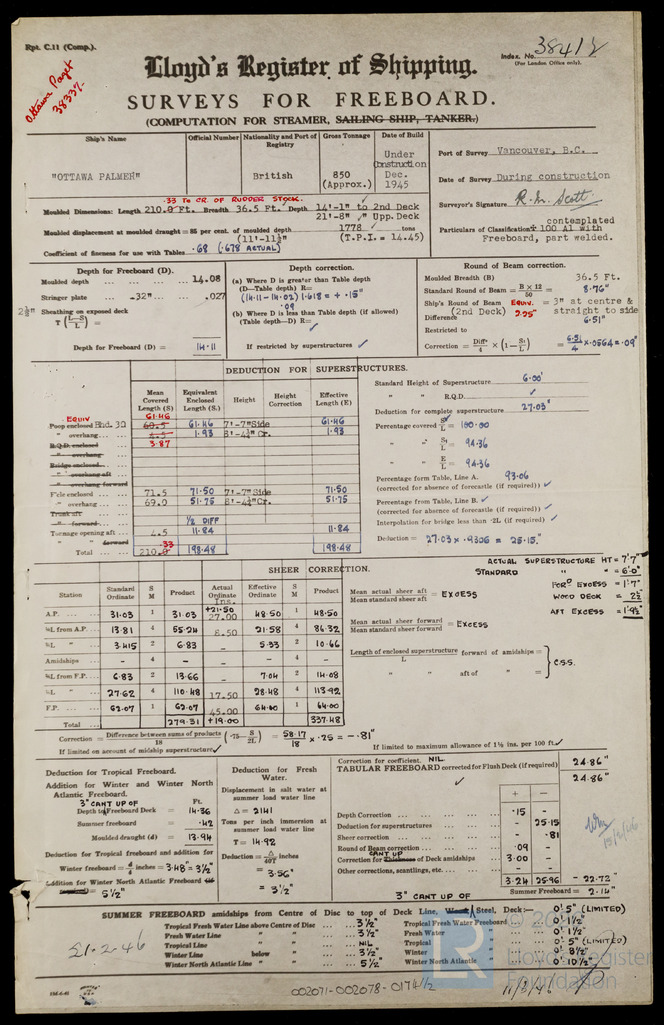 Rpt. C.11 (Comp.).
Index. No. 38412
(For London Office only).
Ottawa Paget
38337.
Lloyd's Register of Shipping.
SURVEYS FOR FREEBOARD.
(COMPUTATION FOR STEAMER, SAILING SHIP, TANKER.)
Ship's Name
Official Number
Nationality and Port of Registry
Gross Tonnage
Date of Build
"OTTAWA PALMER"
British
850 (Approx.)
Under Construction Dec. 1945
Port of Survey Vancouver, B.C.
Date of Survey During construction
Surveyor's Signature R. L. Scott
contemplated
Particulars of Classification + 100 A1 with Freeboard, part welded.
.33 TO CR. OF RUDDER STOCK.
Moulded Dimensions: Length 210.0 Ft. Breadth 36.5 Ft. Depth 14'-1" to 2nd Deck
21'-8" Upp.Deck
Moulded displacement at moulded draught = 85 per cent. of moulded depth 1778 tons
(11'-11½" (T.P.I. = 14.45)
Coefficient of fineness for use with Tables .68 (.678 ACTUAL)
Depth for Freeboard (D).
Moulded depth 14.08
Stringer plate .32" .027
2½" Sheathing on exposed deck
T (L-S/L) =
Depth for Freeboard (D) = 14.11
Depth correction.
(a) Where D is greater than Table depth
(D—Table depth) R=
(14.11 - 14.02) 1.618 = + .15"
.09
(b) Where D is less than Table depth (if allowed)
(Table depth—D) R=
If restricted by superstructures
Round of Beam correction.
Moulded Breadth (B) 36.5 Ft.
Standard Round of Beam = B × 12/50 = 8.76"
Ship's Round of Beam EQUIV. = 3" at centre &
(2nd Deck) 2.25" straight to side
Difference 6.51"
Restricted to
Correction = Diff/4 × (1 - S₁/L) = 6.51/4 × .0564 = .09"
DEDUCTION FOR SUPERSTRUCTURES.
Mean Covered Length (S)
Equivalent Enclosed Length (S₁)
Height
Height Correction
Effective Length (E)
EQUIV 61.46
Poop enclosed Bhd.30 60.5 61.46 7'-7"Side 61.46
" overhang 4.5 1.93 8'-4¾"Cr. 1.93
R.Q.D. enclosed 3.87
" overhang
Bridge enclosed
" overhang aft
" overhang forward
F'cle enclosed 71.5 71.50 7'-7"Side 71.50
" overhang 69.0 51.75 8'-4¾"Cr. 51.75
Trunk aft
" forward ½ DIFF
Tonnage opening aft 4.5 11.84 11.84
" " forward .33
Total 210.0 198.48 198.48
Standard Height of Superstructure 6.00'
" " R.Q.D.
Deduction for complete superstructure 27.03"
Percentage covered S/L = 100.00
" " S₁/L = 94.36
" " E/L = 94.36
Percentage from Table, Line A. 93.06
(corrected for absence of forecastle (if required))
Percentage from Table, Line B.
(corrected for absence of forecastle (if required))
Interpolation for bridge less than ·2L (if required)
Deduction = 27.03 × .9306 = 25.15"
SHEER CORRECTION.
ACTUAL SUPERSTRUCTURE HT = 7'.7"
STANDARD " " = 6'.0"
FOR'D EXCESS = 1'.7"
WOOD DECK = 2½"
AFT EXCESS = 1'.9½"
Station
Standard Ordinate
S M
Product
Actual Ordinate Ins.
Effective Ordinate
S M
Product
A.P. 31.03 1 31.03 +21.50 27.00 48.50 1 48.50
⅙L from A.P. 13.81 4 55.24 8.50 21.58 4 86.32
⅓L " 3.415 2 6.83 - 5.33 2 10.66
Amidships - 4 - - - 4 -
⅓L from F.P. 6.83 2 13.66 7.04 2 14.08
⅙L " 27.62 4 110.48 17.50 28.48 4 113.92
F.P. 62.07 1 62.07 45.00 64.00 1 64.00
Total 279.31 +19.00 337.48
Mean actual sheer aft / Mean standard sheer aft = EXCESS
Mean actual sheer forward / Mean standard sheer forward = EXCESS
Length of enclosed superstructure / L forward of amidships =
" " aft of " = } C.S.S.
Correction = Difference between sums of products/18 (·75 - S/2L) = 58.17/18 × .25 = -.81"
If limited on account of midship superstructure
If limited to maximum allowance of 1½ ins. per 100 ft.
Deduction for Tropical Freeboard.
Addition for Winter and Winter North Atlantic Freeboard.
3" CANT UP OF Ft.
Depth to Freeboard Deck = 14.36
Summer freeboard = .42
Moulded draught (d) = 13.94
Deduction for Tropical freeboard and addition for
Winter freeboard = d/4 inches = 3.48" = 3½"
Addition for Winter North Atlantic Freeboard
= 5½"
Deduction for Fresh Water.
Displacement in salt water at summer load water line
Δ = 2141
Tons per inch immersion at summer load water line
T = 14.92
Deduction = Δ/40T inches
= 3.56"
= 3½"
Correction for coefficient. NIL.
TABULAR FREEBOARD corrected for Flush Deck (if required) 24.86"
24.86"
+ -
Depth Correction .15 -
Deduction for superstructures - 25.15
Sheer correction - .81
Round of Beam correction .09 -
CANT UP
Correction for Thickness of Deck amidships 3.00 -
Other corrections, scantlings, etc.
3.24 25.96 - 22.72"
Summer Freeboard = 2.14"
3" CANT UP OF
SUMMER FREEBOARD amidships from Centre of Disc to top of Deck Line, Wood Steel, Deck:— 0'. 5" (LIMITED)
Tropical Fresh Water Line above Centre of Disc 3½" Tropical Fresh Water Freeboard 0'. 1½"
Fresh Water Line " " 3½" Fresh Water " 0'. 1½"
Tropical Line " " NIL Tropical " 0'. 5" (LIMITED)
Winter Line below " 3½" Winter " 0'. 8½"
Winter North Atlantic Line " " 5½" Winter North Atlantic " 0'. 10½"
21-2-46
002071-002078-0174 1/2
11/3/46
LR
Lloyd's Register
Foundation